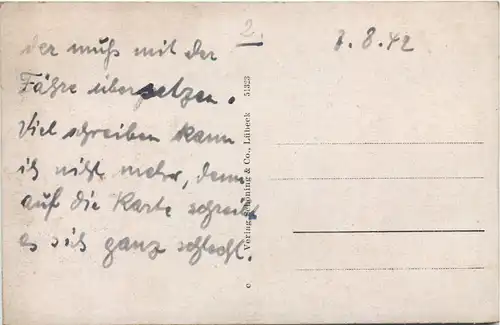 der muß mit der
Fähre übersetzen.
Viel schreiben kann
ich nicht mehr, denn
auf die Karte schreibt
es sich ganz schlecht.
2.
7.8.42
Verlag Schöning & Co., Lübeck 51323